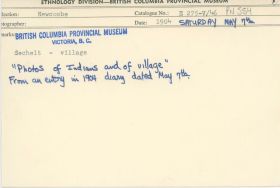 ETHNOLOGY DIVISION—BRITISH COLUMBIA PROVINCIAL MUSEUM
Newcombe Catalogue No.: PN 564
Date: 1904 SATURDAY MAY 7th
BRITISH COLUMBIA PROVINCIAL MUSEUM
VICTORIA, B.C.
Sechelt - village
"Photos of Indians and of village"
From an entry in 1904 diary dated May 7th.